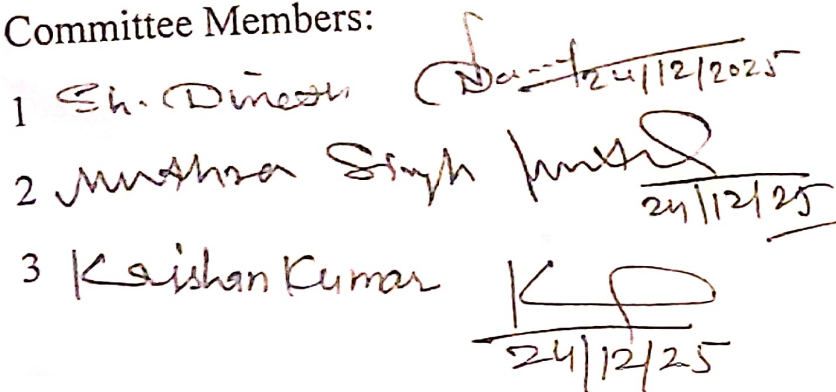 Committee Members:
1 Sh. Dinesh 24/12/2025
2 Muthra Singh 24/12/25
3 Krishan Kumar 24/12/25